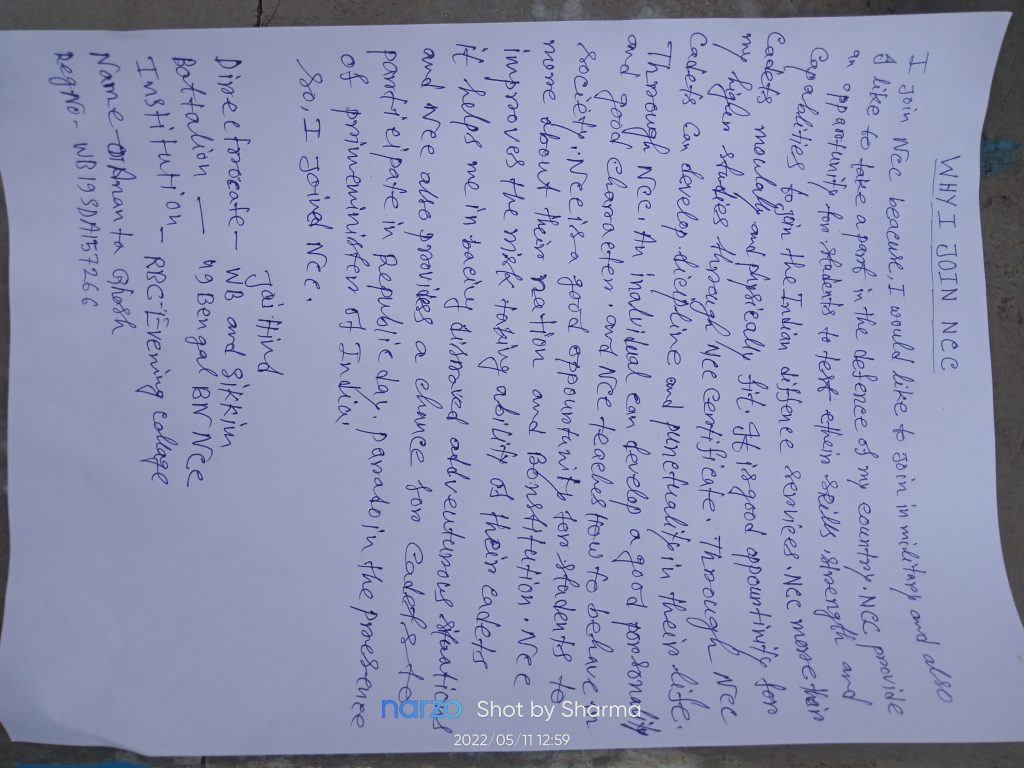 WHY I JOIN NCC
I join Ncc beacuse, I would like to join in military and also
I like to take a part in the defence of my country. NCC provide
an opparatunity for students to test their skills strength and
Capabilities to join the Indian difference services. Ncc more than
Cadets menaly and physically fit. It is good oppountinity for
my higher studies through Ncc Certificate. Through Ncc
Cadets can develop dicipline and punctuality in their life.
Through Ncc. An individual can develop a good personality
and good character. and Ncc teaches how to behave in
society. Ncc is a good oppountunity for students to
more about their nation and Constitution. Ncc
improves the risk taking ability of their cadets
it helps me in bacing diStoved adventurous
and Ncc also provides a chance for Cadets to
participate in Republic day, parade in the presence
of primeminister of India.
So, I joined Ncc.
Directorate - WB and Sikkim
Battalion - 49 Bengal BN Ncc
Institution - RBC Evening collage
Name - Ananta Ghosh
Reg No - WB19SDA157266
narzo Shot by Sharma
2022/05/11 12:59